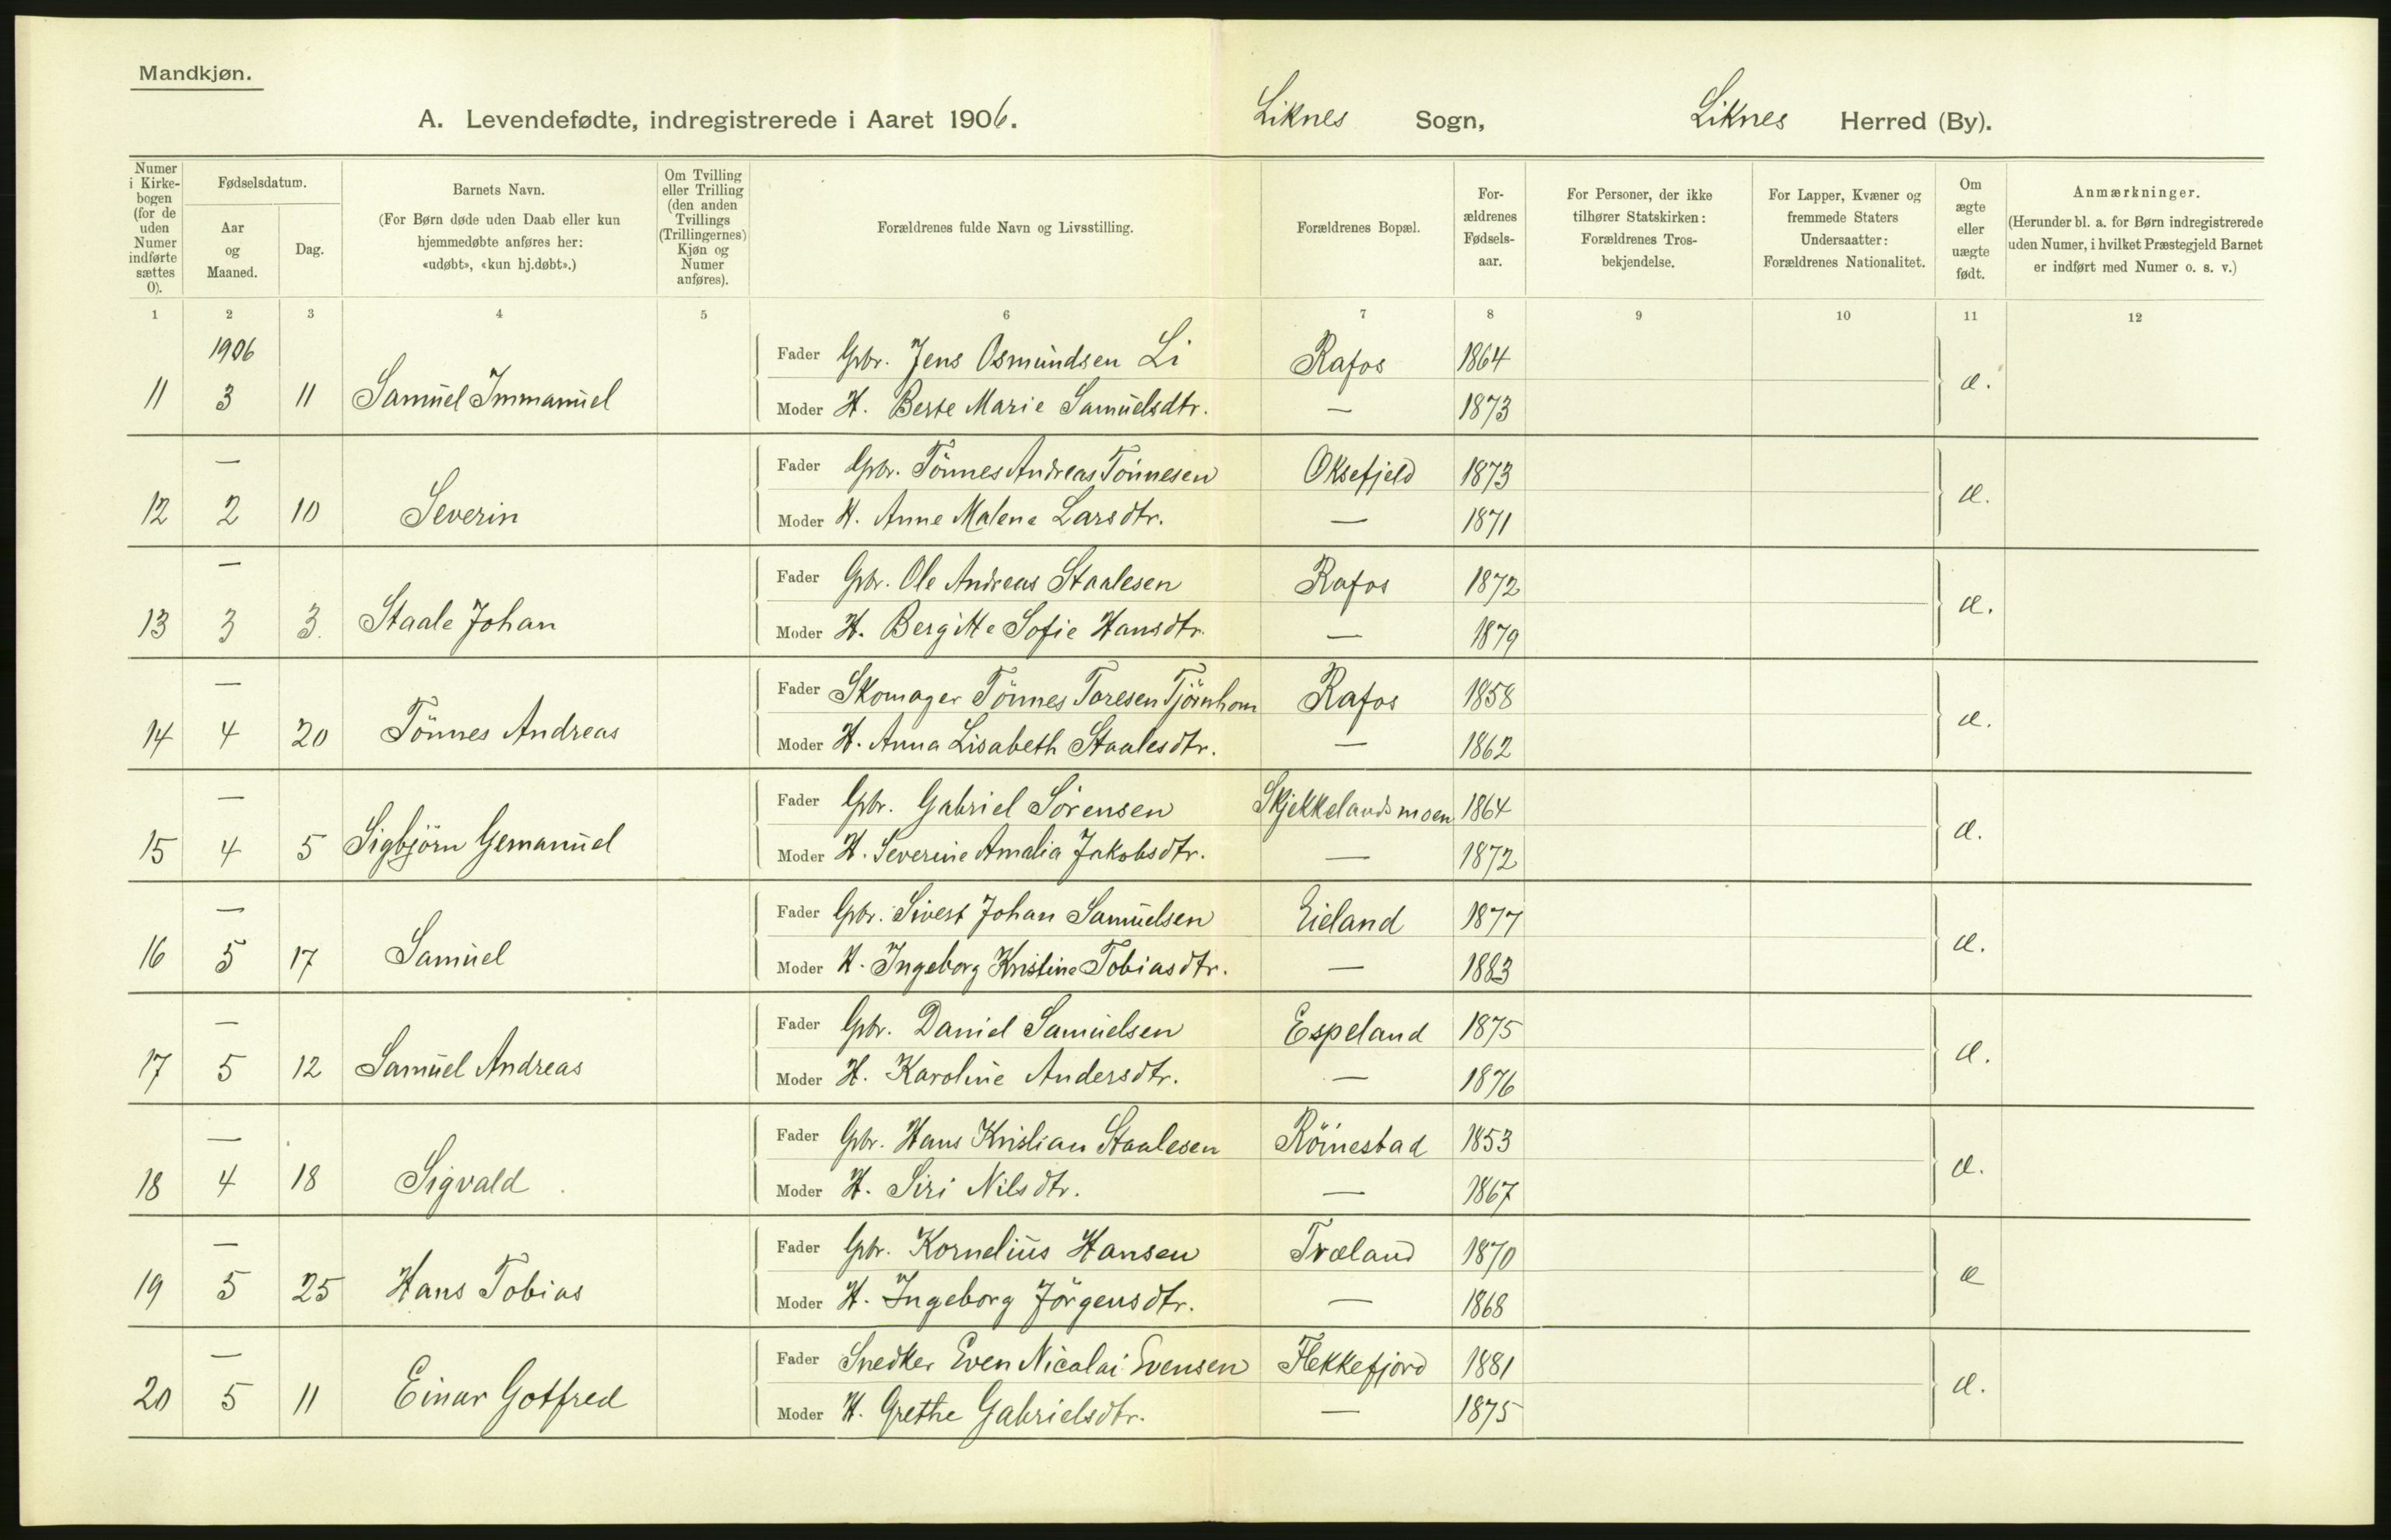 Mandkjøn.
A. Levendefødte, indregistrerede i Aaret 1906. Liknes Sogn, Liknes Herred (By).
Numer i Kirkebogen (for de uden Numer indførte sættes 0).
Fødselsdatum.
Aar og Maaned.
Dag.
Barnets Navn.
(For Børn døde uden Daab eller kun hjemmedøbte anføres her: «udøbt», «kun hj.døbt».)
Om Tvilling eller Trilling (den anden Tvillings (Trillingernes) Kjøn og Numer anføres).
Forældrenes fulde Navn og Livsstilling.
Forældrenes Bopæl.
Forældrenes Fødselsaar.
For Personer, der ikke tilhører Statskirken: Forældrenes Trosbekjendelse.
For Lapper, Kvæner og fremmede Staters Undersaatter: Forældrenes Nationalitet.
Om ægte eller uægte født.
Anmærkninger.
(Herunder bl. a. for Børn indregistrerede uden Numer, i hvilket Præstegjeld Barnet er indført med Numer o. s. v.)
1 2 3 4 5 6 7 8 9 10 11 12
1906
Fader Gbr. Jens Osmundsen Li Rafos 1864
11 3 11 Samuel Immanuel æ.
Moder H. Berte Marie Samuelsdtr. — 1873
—
Fader Gbr. Tönnes Andreas Tönnesen Oksefjeld 1873
12 2 10 Severin æ.
Moder H. Anne Malene Larsdtr. — 1871
—
Fader Gbr. Ole Andreas Staalesen Rafos 1872
13 3 3. Staale Johan æ.
Moder H. Bergitte Sofie Hansdtr. — 1879
—
Fader Skomager Tönnes Toresen Tjörnhom Rafos 1858
14 4 20 Tönnes Andreas æ.
Moder H. Anna Lisabeth Staalesdtr. — 1862
—
Fader Gbr. Gabriel Sörensen Skjekkelandsmoen 1864
15 4 5 Sigbjörn Gemanuel æ.
Moder H. Severine Amalia Jakobsdtr. — 1872
—
Fader Gbr. Sivert Johan Samuelsen Eieland 1877
16 5 17 Samuel æ.
Moder H. Ingeborg Kristine Tobiasdtr. — 1883
—
Fader Gbr. Daniel Samuelsen Espeland 1875
17 5 12 Samuel Andreas æ.
Moder H. Karoline Andersdtr. — 1876
—
Fader Gbr. Hans Kristian Staalesen Röinestad 1853
18 4 18 Sigvald æ.
Moder H. Siri Nilsdtr. — 1867
—
Fader Gbr. Kornelius Hansen Træland 1870
19 5 25 Hans Tobias æ
Moder H. Ingeborg Jörgensdtr. — 1868
—
Fader Snedker Even Nicolai Evensen Flekkefjord 1881
20 5 11 Einar Gotfred æ.
Moder H. Grethe Gabrielsdtr. — 1875